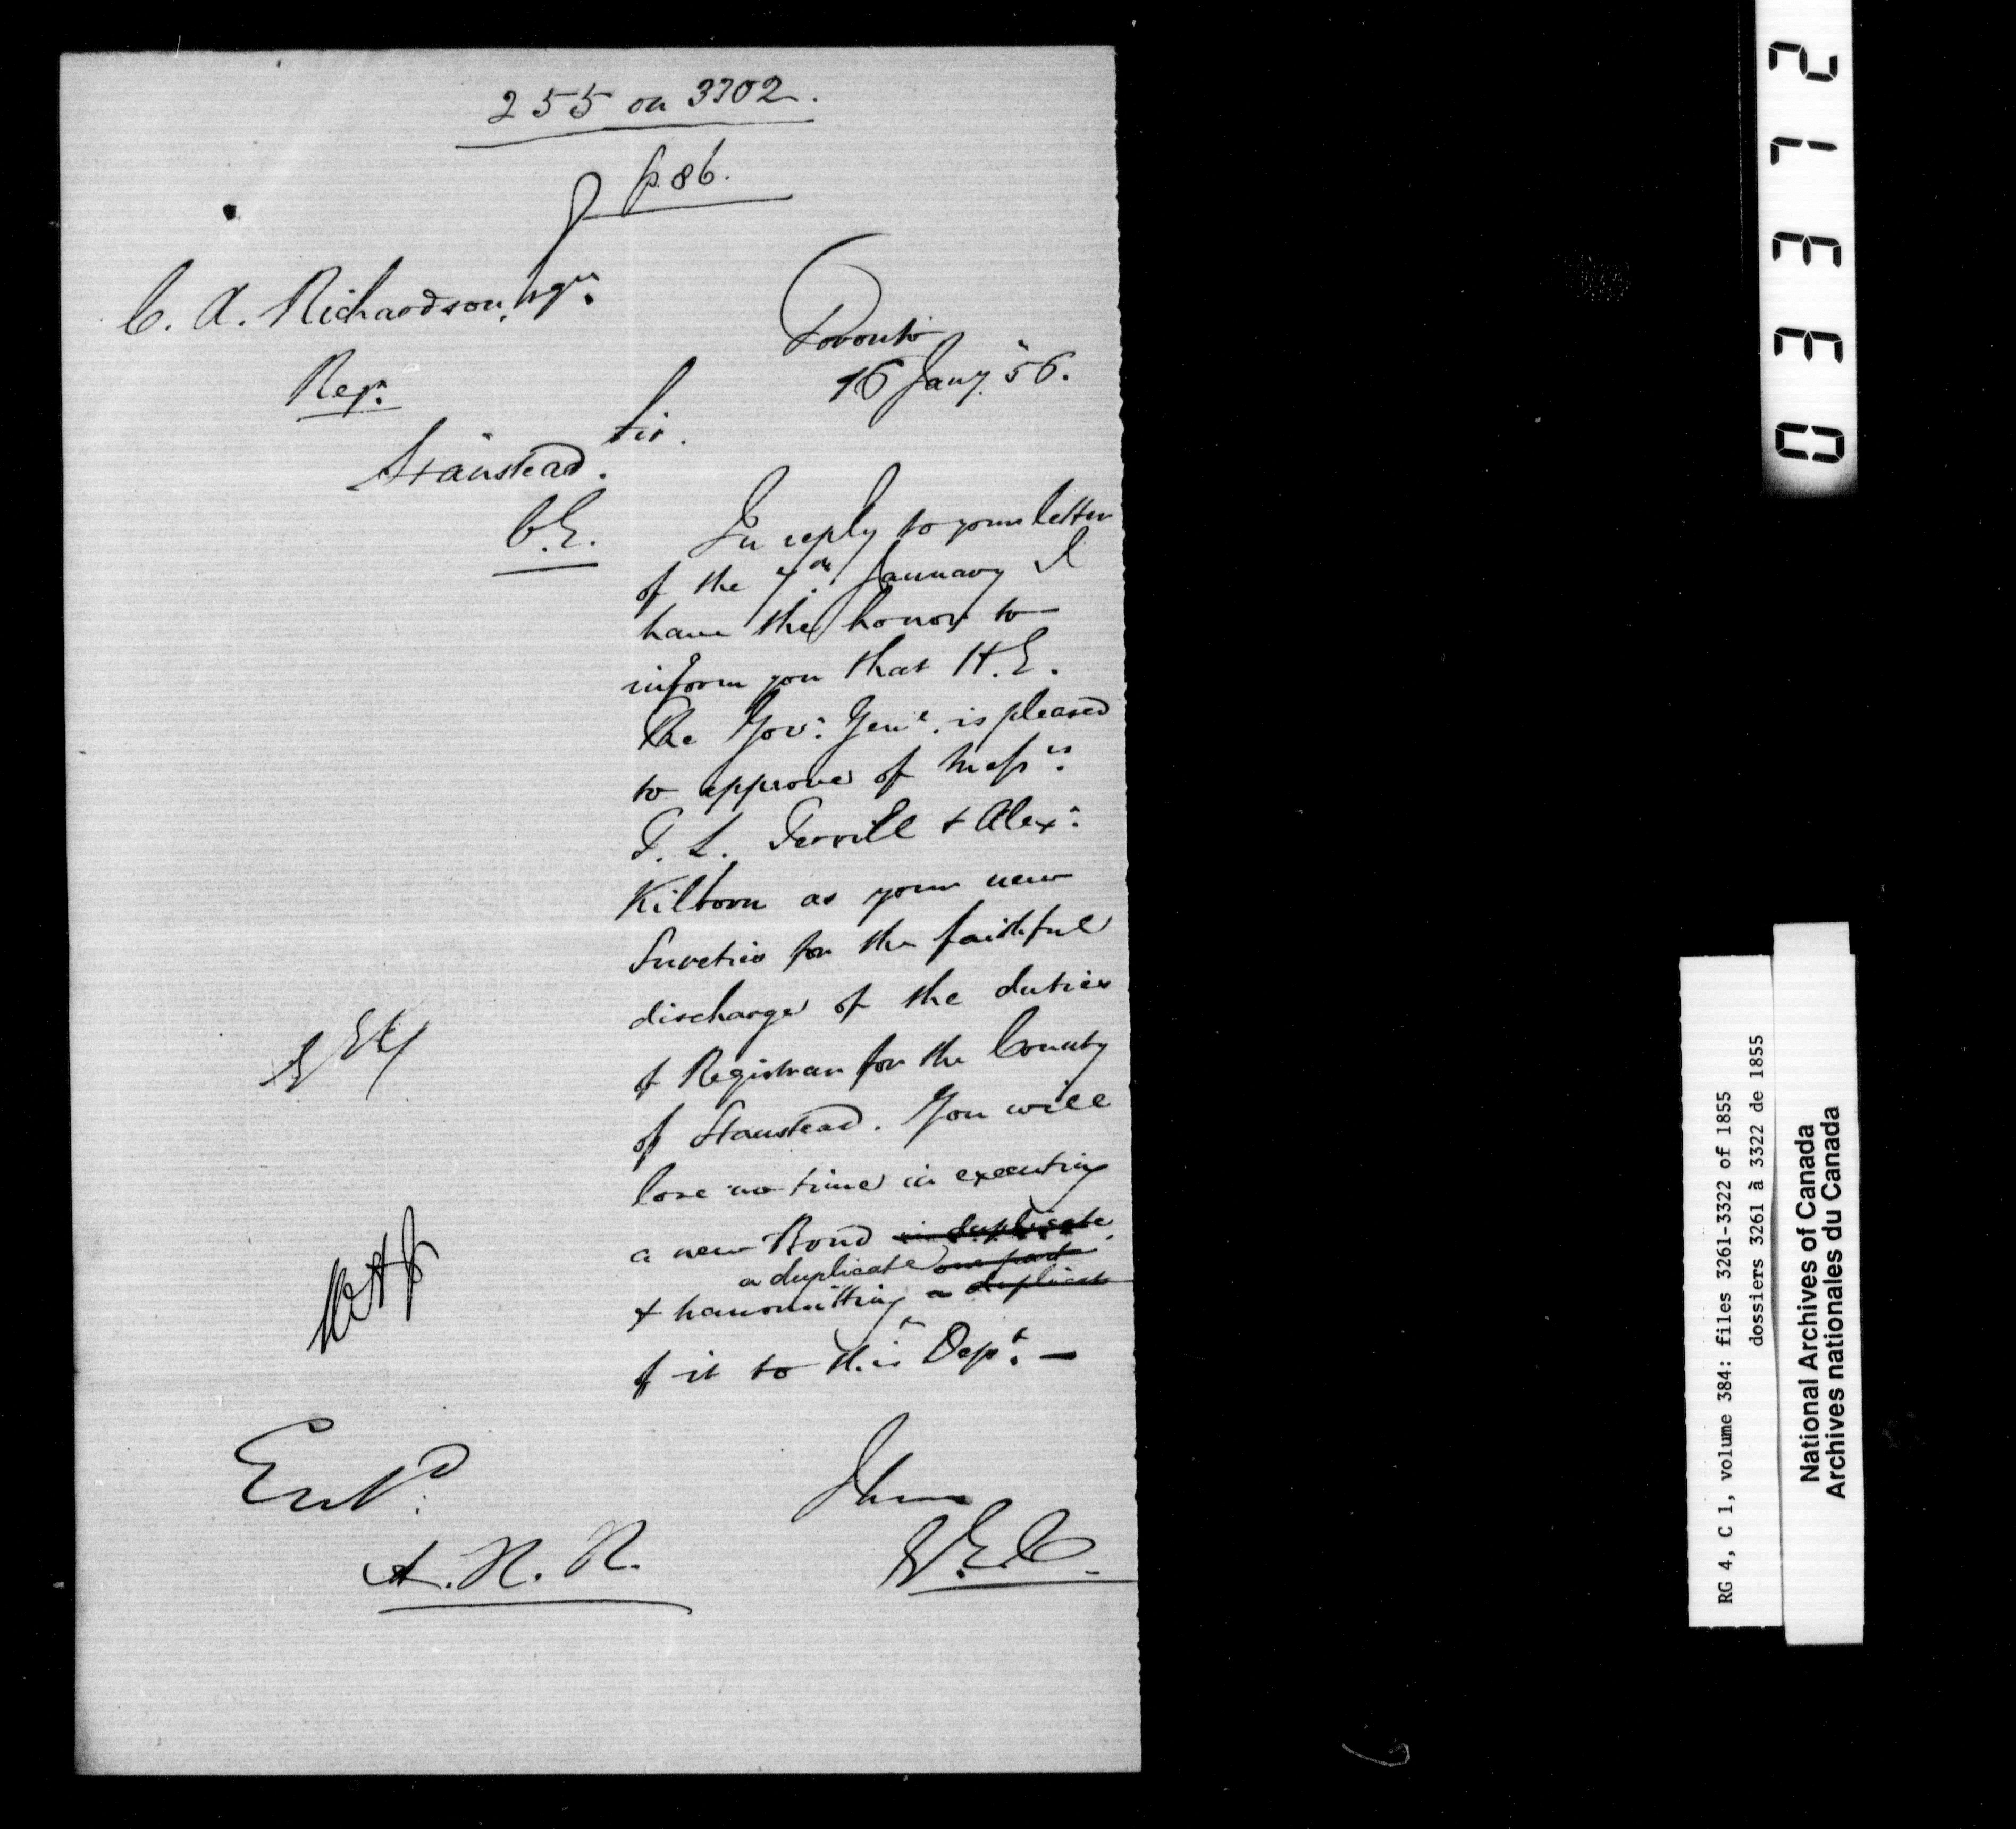 255 on 3302.
p. 86.
C. A. Richardson, Esqr.
Regr.
Stanstead.
C.E.
Toronto
16 Jany. '56.
Sir.
In reply to your letter
of the 7th. January I
have the honor to
inform you that H.E.
The Govr. Genl. is pleased
to approve of Messrs.
T. L. Terrill & Alexr.
Kilborn as your new
Sureties for the faithful
discharge of the duties
of Registrar for the County
of Stanstead. You will
lose no time in executing
a new Bond in duplicate,
a duplicate one part
& transmitting a duplicate
of it to this Dept. —
I have
G.E.C.
Entd.
A. R. R.
03312
RG 4, C 1, volume 384: files 3261-3322 of 1855
dossiers 3261 à 3322 de 1855
National Archives of Canada
Archives nationales du Canada